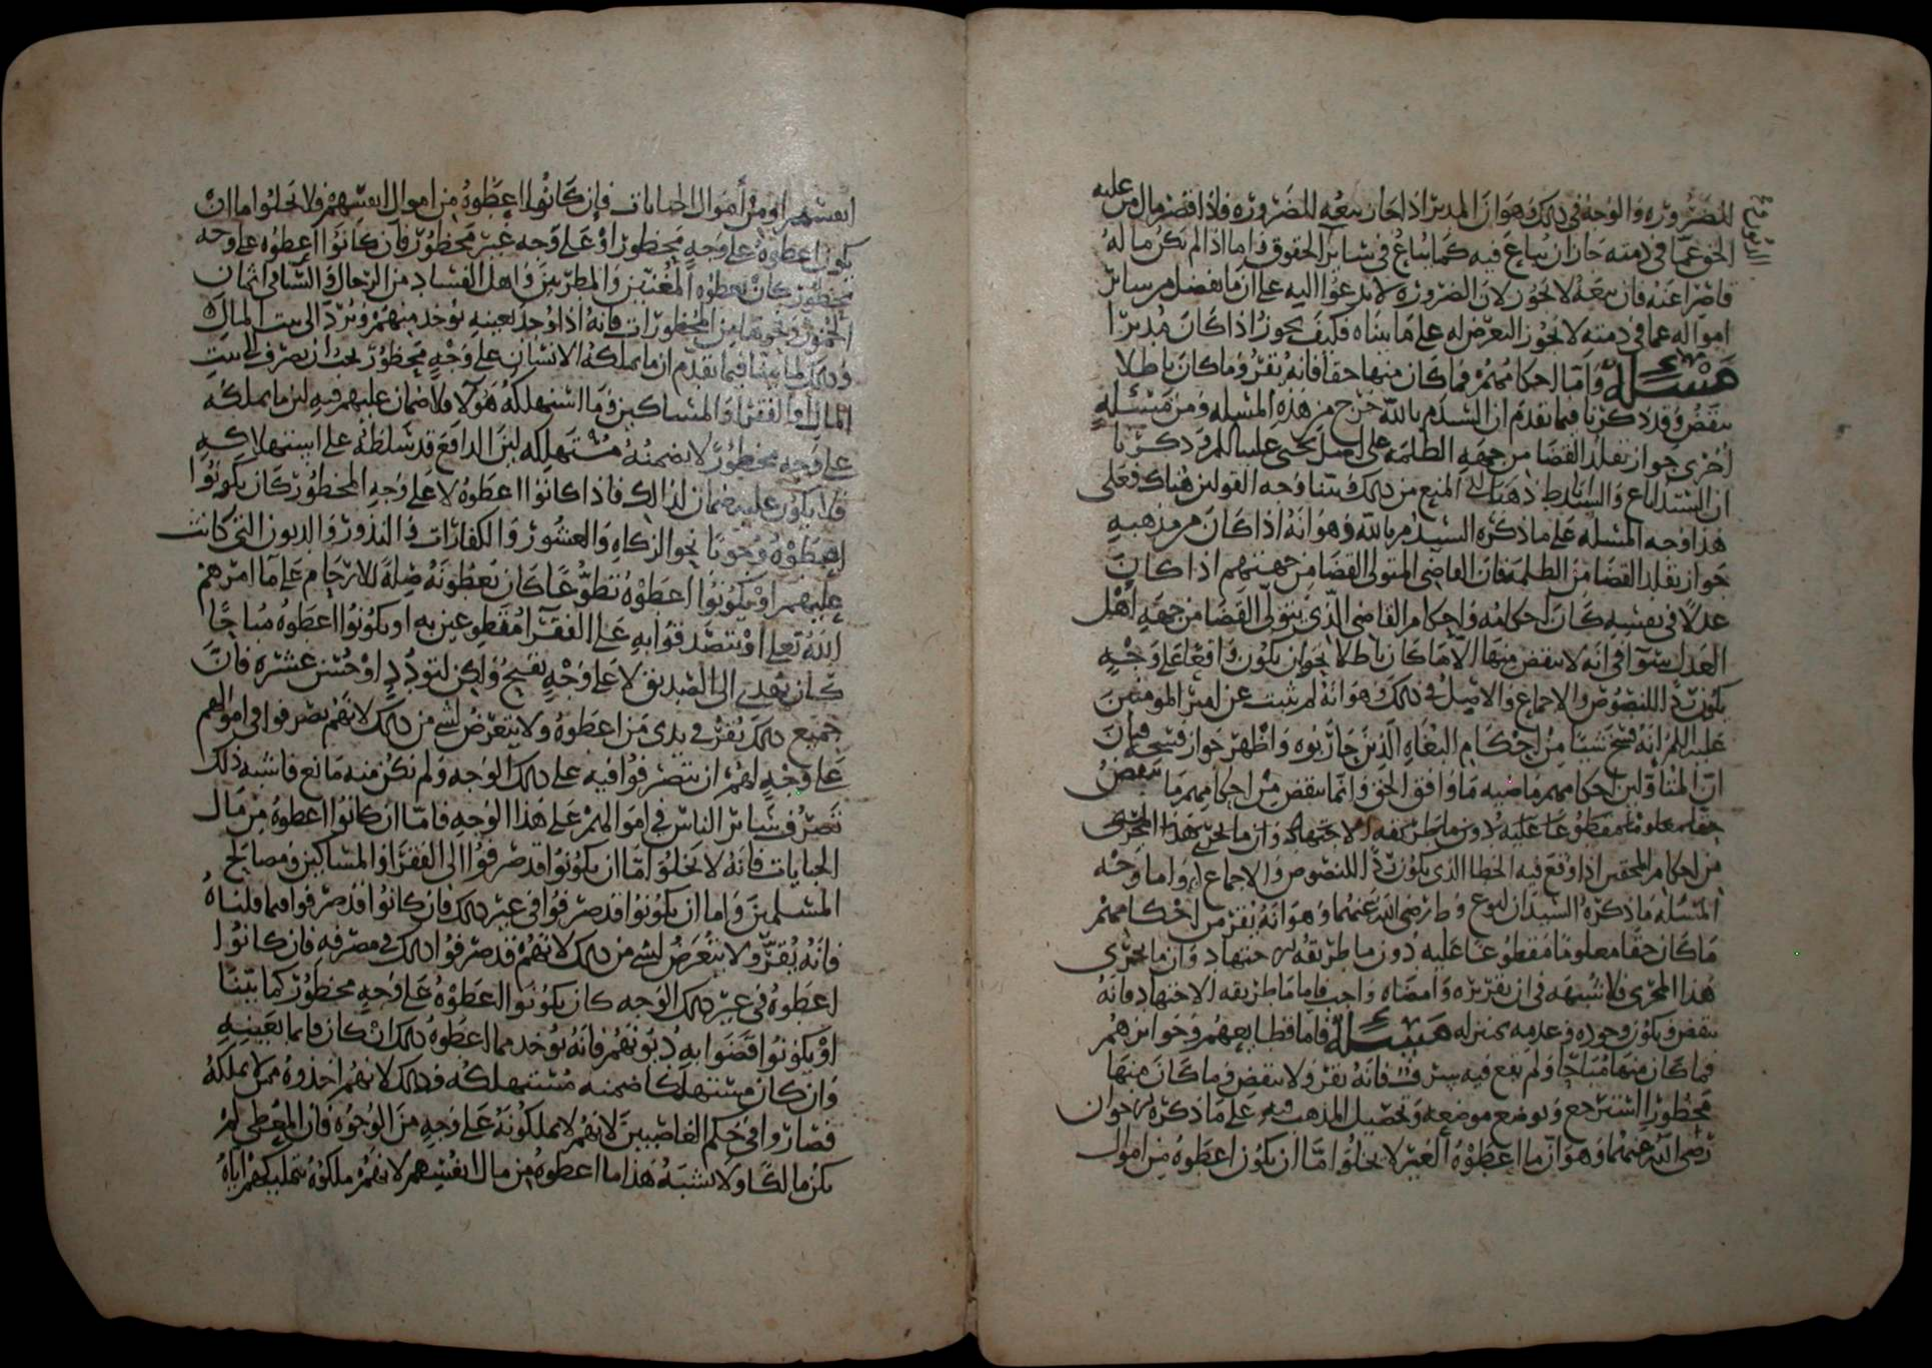 للضرورة والوجه في ذلك هو ان المدبر اذا جاز بيعه للضرورة فاذا قصر مال من عليه
الحق عما في ذمته جاز ان يباع فيه كما يباع في سائر الحقوق فاما اذا لم يكن ماله
قاصرا عنه فان بيعه لا يجوز لان الضرورة لا تدعوا اليه على ان ما يفضل من سائر
امواله عما في ذمته لا يجوز التعرض له على ما بيناه فكيف يجوز اذا كان مدبرا
مسئلة واما احكامهم فما كان منها حقا فانه يقر وما كان باطلا
ينقض وقد ذكرنا فيما تقدم ان السيد م بالله خرج من هذه المسئلة ومن مسئلة
اخرى جواز تقلد القضا من جهة الظلمة على اصل يحيى عليه السلم وذكرنا
ان السيد ع والسيد ط ذهبا الى المنع من ذلك وبينا وجه القولين هناك فعلى
هذا وجه المسئلة على ما ذكره السيد م بالله وهو انه اذا كان من مذهبه
جواز تقلد القضا من الظلمة فان القاضي المتولي القضا من جهتهم اذا كان
عدلا في نفسه كان احكامه واحكام القاضي الذي يتولى القضا من جهة اهل
العدل سوآ في انه لا ينقض منها الا ما كان باطلا بجواز يكون واقعا على وجه
يكون ردا للنصوص والاجماع والاصل في ذلك هو انه لم يثبت عن امير المومنين
عليه السلم انه فسخ شيئا من احكام البغاة الذين حاربوه واظهر جواز فسخه فبان
ان المتاولين احكامهم ماضيه ما وافق الحق وانما ينقض من احكامهم ما ينقض
حقا معلوما مقطوعا عليه دون ما طريقه الاجتهاد وان ما يجري هذا المجرى
من احكام المحقين اذا وقع فيه الخطا الذي يكون ردا للنصوص والاجماع واما وجه
المسئلة ما ذكره السيدان ع و ط رضي الله عنهما وهو انه يقر من احكامهم
ما كان حقا معلوما مقطوعا عليه دون ما طريقه الاجتهاد وان ما يجري
هذا المجرى فلا شبهة في ان تقريره وامضاه واجب فاما ما طريقه الاجتهاد فانه
ينقض ويكون وجوده وعدمه بمنزلة مسئلة فاما قطايعهم وجوايزهم
فما كان منها مباحا ولم يقع فيه سرف فانه يقر ولا ينقض وما كان منها
محظورا استرجع ووضع موضعه وتحصيل المذهب فيه على ما ذكره الاخوان
رضي الله عنهما وهو ان ما اعطوه الغير لا يخلوا اما ان يكون اعطوه من اموال
انفسهم او من اموال الجبايات فان كانوا اعطوه من اموال انفسهم فلا يخلوا اما ان
يكون اعطوه على وجه محظور او على وجه غير محظور فان كانوا اعطوه على وجه
محظور كان يعطوه المغنين والمطربين واهل الفساد من الرجال والنسا في اثمان
الخمور ونحوها من المحظورات فانه اذا وجد بعينه يوخذ منهم ويرد الى بيت المال
وذلك لما بينا فيما تقدم ان ما يملكه الانسان على وجه محظور يجب ان يصرف الى بيت
المال او الفقرا والمساكين وما استهلكه هولا ولا ضمان عليهم فيه لان ما يملكه
على وجه محظور لا يضمنه مستهلكه لان الدافع قد سلطه على استهلاكه
فلا يكون عليه ضمان لذالك فاذا كانوا اعطوه لا على وجه المحظور كان يكونوا
اعطوه وجوبا نحو الزكاه والعشور والكفارات والنذور والديون التي كانت
عليهم او يكونوا اعطوه تطوعا كان يعطونه صلة للارحام على ما امرهم
الله تعلى او تتصدقوا به على الفقرآ متطوعين به او يكونوا اعطوه مباحا
كان يهدى الى الصديق لا على وجه يقبح ولكن لتودد او حسن عشرة فان
جميع ذلك يقر في يدي من اعطوه ولا يتعرض لشي من ذلك لانهم تصرفوا في اموالهم
على وجه لهم ان يتصرفوا فيه على ذلك الوجه ولم يكن منه مانع فاشبه ذلك
تصرف سائر الناس في اموالهم على هذا الوجه فاما ان كانوا اعطوه من مال
الجبايات فانه لا يخلوا اما ان يكونوا قد صرفوا الى الفقرا والمساكين ومصالح
المسلمين واما ان يكونوا قد صرفوا في غير ذلك فان كانوا قد صرفوا فيما قلناه
فانه يقر ولا يتعرض لشي من ذلك لانهم قد صرفوا ذلك في مصرفه فان كانوا
اعطوه في غير ذلك الوجه كان يكونوا اعطوه على وجه محظور كما بينا
او يكونوا قضوا به ديونهم فانه يوخذ مما اعطوه ذلك ان كان قائما بعينه
وان كان مستهلكا ضمنه مستهلكه وذلك لانهم اخذوه ممن لا يملكه
فصاروا في حكم الغاصبين لانهم لا يملكونه على وجه من الوجوه فان المعطي لم
يكن مالكا ولا يشبه هذا ما اعطوه من مال انفسهم لانهم ملكوه بتمليكهم اياه